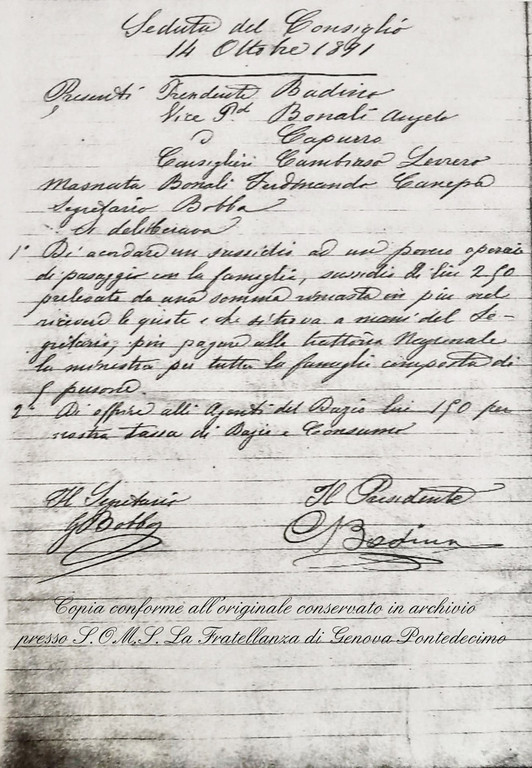 Seduta del Consiglio
14 Ottobre 1891
Presenti Presidente Badino
Vice Pd Bonali Angelo
D Capurro
Consiglieri Cambiaso Ferrero
Masnata Bonali Ferdinando Canepa
Segretario Bobba
si deliberava
1° Di acordare un sussidio ad un povero operaio
di pasaggio con la famiglia, sussidio di lire 2.50
prelevate da una somma rimasta in piu nel
ricevere le quote e che si trova a mani del Se-
gretario, piu pagare alla trattoria Nazionale
la minestra per tutta la famiglia composta di
5 persone.
2° Di offrire alli Agenti del Dazio lire 1.50 per
nostra tassa di Dazio e Consumo
Il Segretario Il Presidente
G Bobba Badino
Copia conforme all'originale conservato in archivio
presso S.O.M.S. La Fratellanza di Genova Pontedecimo